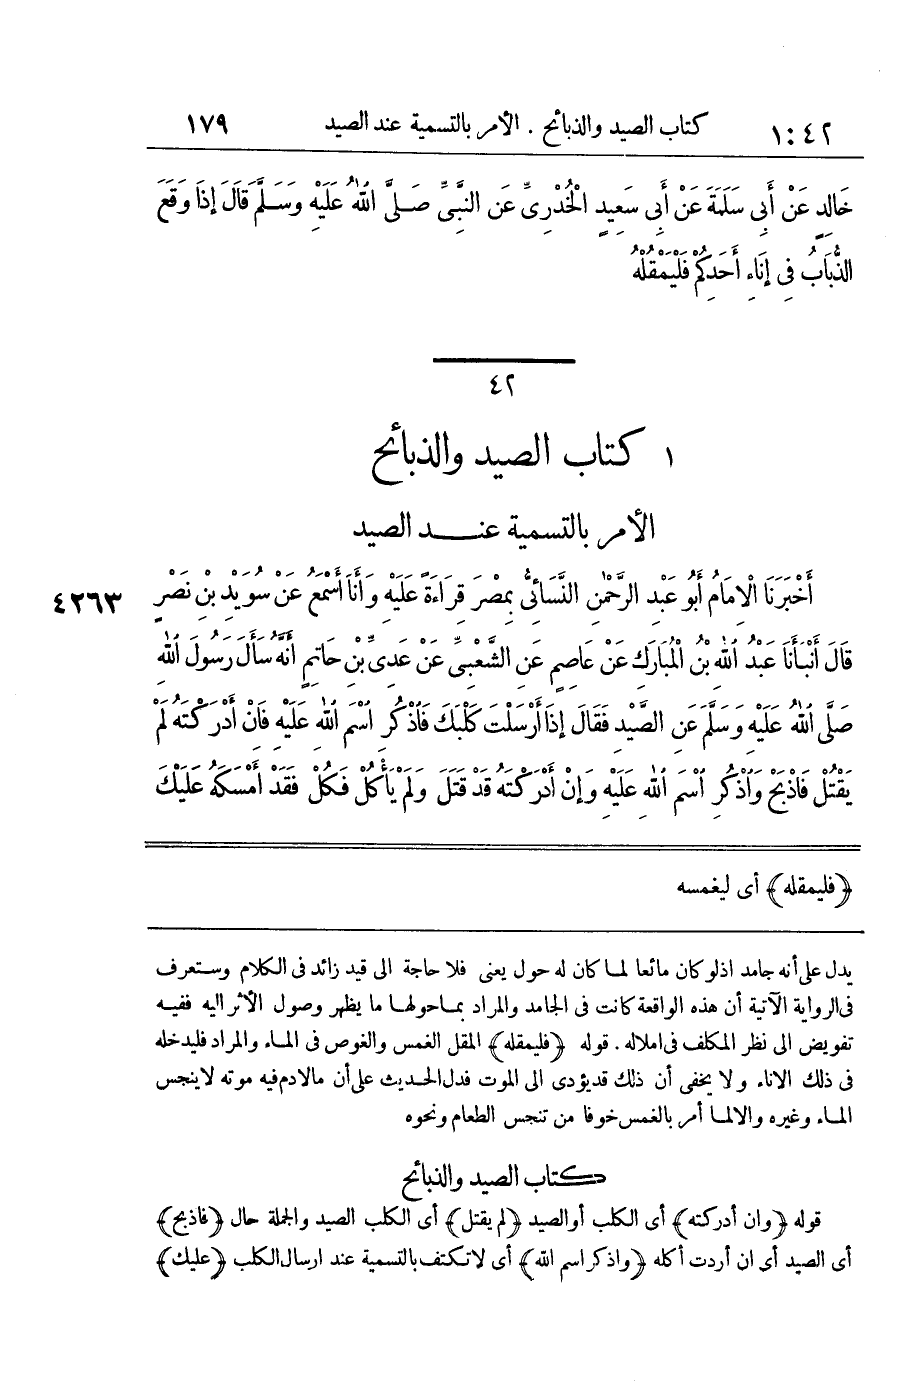 ٤٢ : ١ كتاب الصيد والذبائح . الأمر بالتسمية عند الصيد ١٧٩
خَالِدٍ عَنْ أَبِي سَلَمَةَ عَنْ أَبِي سَعِيدٍ الْخُدْرِىِّ عَنِ النَّبِىِّ صَلَّى اللهُ عَلَيْهِ وَسَلَّمَ قَالَ إِذَا وَقَعَ
الذُّبَابُ فِى إِنَاءِ أَحَدِكُمْ فَلْيَمْقُلْهُ
٤٢
١ كتاب الصيد والذبائح
الأمر بالتسمية عند الصيد
أَخْبَرَنَا الْإِمَامُ أَبُو عَبْدِ الرَّحْمٰنِ النَّسَائِىُّ بِمِصْرَ قِرَاءَةً عَلَيْهِ وَأَنَا أَسْمَعُ عَنْ سُوَيْدِ بْنِ نَصْرٍ ٤٢٦٣
قَالَ أَنْبَأَنَا عَبْدُ اللهِ بْنُ الْمُبَارَكِ عَنْ عَاصِمٍ عَنِ الشَّعْبِىِّ عَنْ عَدِىِّ بْنِ حَاتِمٍ أَنَّهُ سَأَلَ رَسُولَ اللهِ
صَلَّى اللهُ عَلَيْهِ وَسَلَّمَ عَنِ الصَّيْدِ فَقَالَ إِذَا أَرْسَلْتَ كَلْبَكَ فَاذْكُرِ اسْمَ اللهِ عَلَيْهِ فَإِنْ أَدْرَكْتَهُ لَمْ
يَقْتُلْ فَاذْبَحْ وَاذْكُرِ اسْمَ اللهِ عَلَيْهِ وَإِنْ أَدْرَكْتَهُ قَدْ قَتَلَ وَلَمْ يَأْكُلْ فَكُلْ فَقَدْ أَمْسَكَهُ عَلَيْكَ
﴿فليمقله﴾ أى ليغمسه
يدل على أنه جامد اذ لو كان مائعا لما كان له حول يعنى فلا حاجة الى قيد زائد فى الكلام وستعرف
فى الرواية الآتية أن هذه الواقعة كانت فى الجامد والمراد بما حولها ما يظهر وصول الأثر اليه ففيه
تفويض الى نظر المكلف فى املاله . قوله ﴿فليمقله﴾ المقل الغمس والغوص فى الماء والمراد فليدخله
فى ذلك الاناء ولا يخفى أن ذلك قد يؤدى الى الموت فدل الحديث على أن مالا دم فيه موته لا ينجس
الماء وغيره والا لما أمر بالغمس خوفا من تنجس الطعام ونحوه
كتاب الصيد والذبائح
قوله ﴿وان أدركته﴾ أى الكلب أو الصيد ﴿لم يقتل﴾ أى الكلب الصيد والجملة حال ﴿فاذبح﴾
أى الصيد أى ان أردت أكله ﴿واذكر اسم الله﴾ أى لا تكتف بالتسمية عند ارسال الكلب ﴿عليك﴾